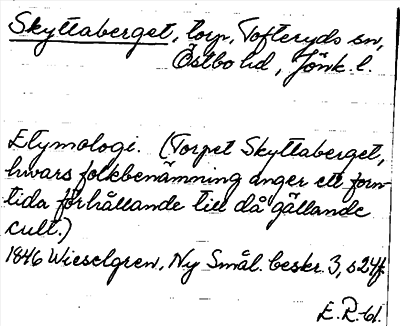 Skyttaberget, torp, Tofteryds sn,
Östbo hd, Jönk. l.
Etymologi. (Torpet Skyttaberget,
hvars folkbenämning anger ett forn-
tida förhållande till då gällande
cult.)
1846 Wieselgren, Ny Smål. beskr. 3, s 247.